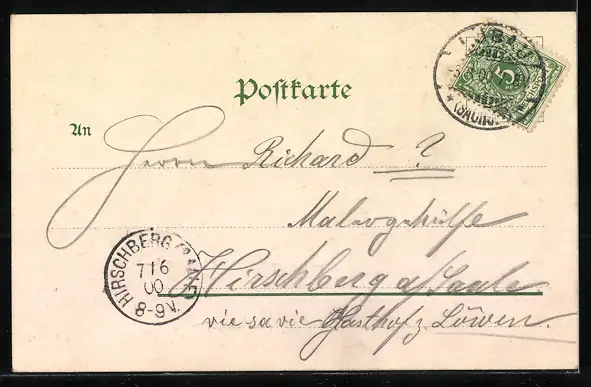 Postkarte
LIMBAU
00
(SACHSEN)
5
An
Herrn Richard ?
Malergehülfe
Hirschberg a/Saale
vis a vie Gasthof z. Löwen.
HIRSCHBERG (SAALE)
7/6
00
8-9V.